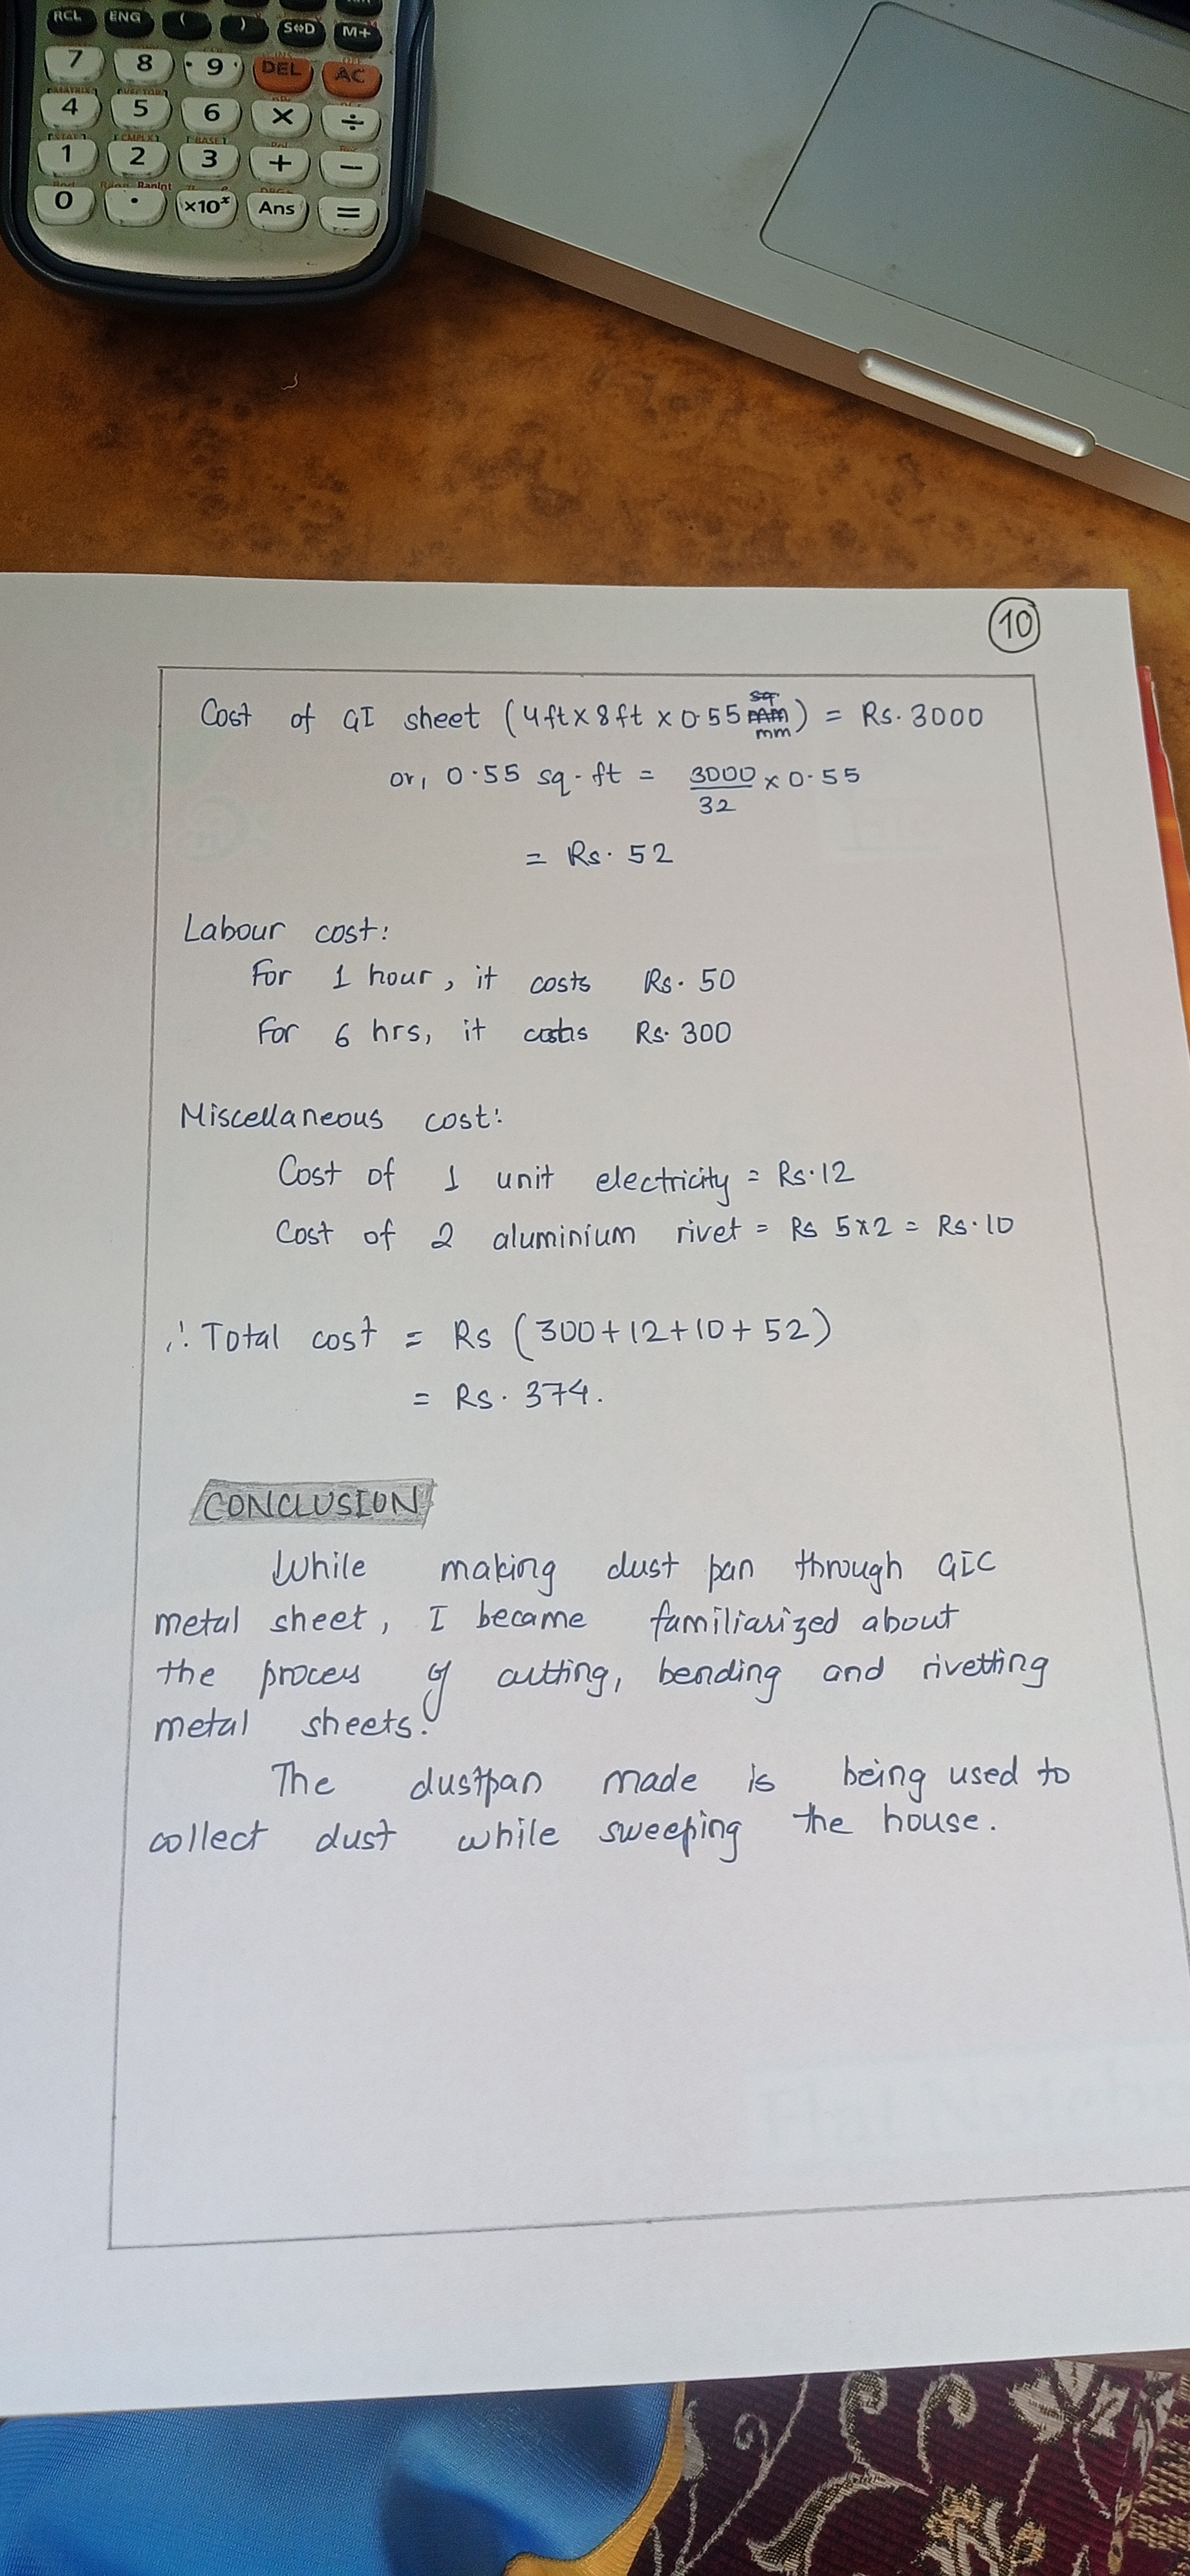 RCL ENG ( ) S⇔D M+
7 8 9 DEL AC
4 5 6 × ÷
1 2 3 + −
0 . ×10ˣ Ans =
10
Cost of GI sheet (4ft x 8ft x 0.55 mm) = Rs. 3000
or, 0.55 sq. ft = 3000/32 x 0.55
= Rs. 52
Labour cost:
For 1 hour, it costs Rs. 50
For 6 hrs, it costs Rs. 300
Miscellaneous cost:
Cost of 1 unit electricity = Rs. 12
Cost of 2 aluminium rivet = Rs 5x2 = Rs. 10
∴ Total cost = Rs (300+12+10+52)
= Rs. 374.
CONCLUSION
While making dust pan through GIC
metal sheet, I became familiarized about
the process of cutting, bending and rivetting
metal sheets.
The dustpan made is being used to
collect dust while sweeping the house.